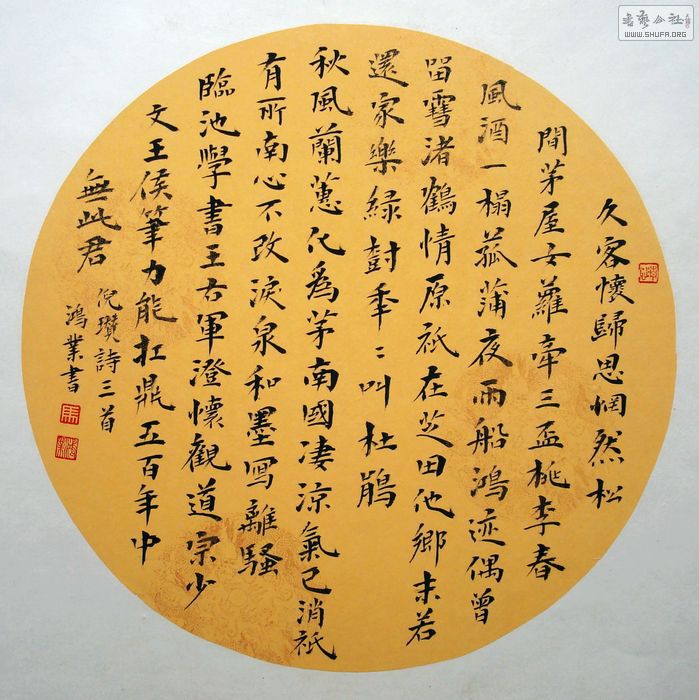 久客懷歸思惘然松
間茅屋女蘿牽三盃桃李春
風酒一榻菰蒲夜雨船鴻迹偶曾
留雪渚鶴情原祇在芝田他鄉未若
還家樂綠尌秊〻叫杜鵑
秋風蘭蕙化爲茅南國凄涼氣已消祇
有所南心不改淚泉和墨寫離騷
臨池學書王右軍澄懷觀道宗少
文王侯筆力能扛鼎五百年中
無此君
倪瓚詩三首
鴻業書
書藝公社
WWW.SHUFA.ORG